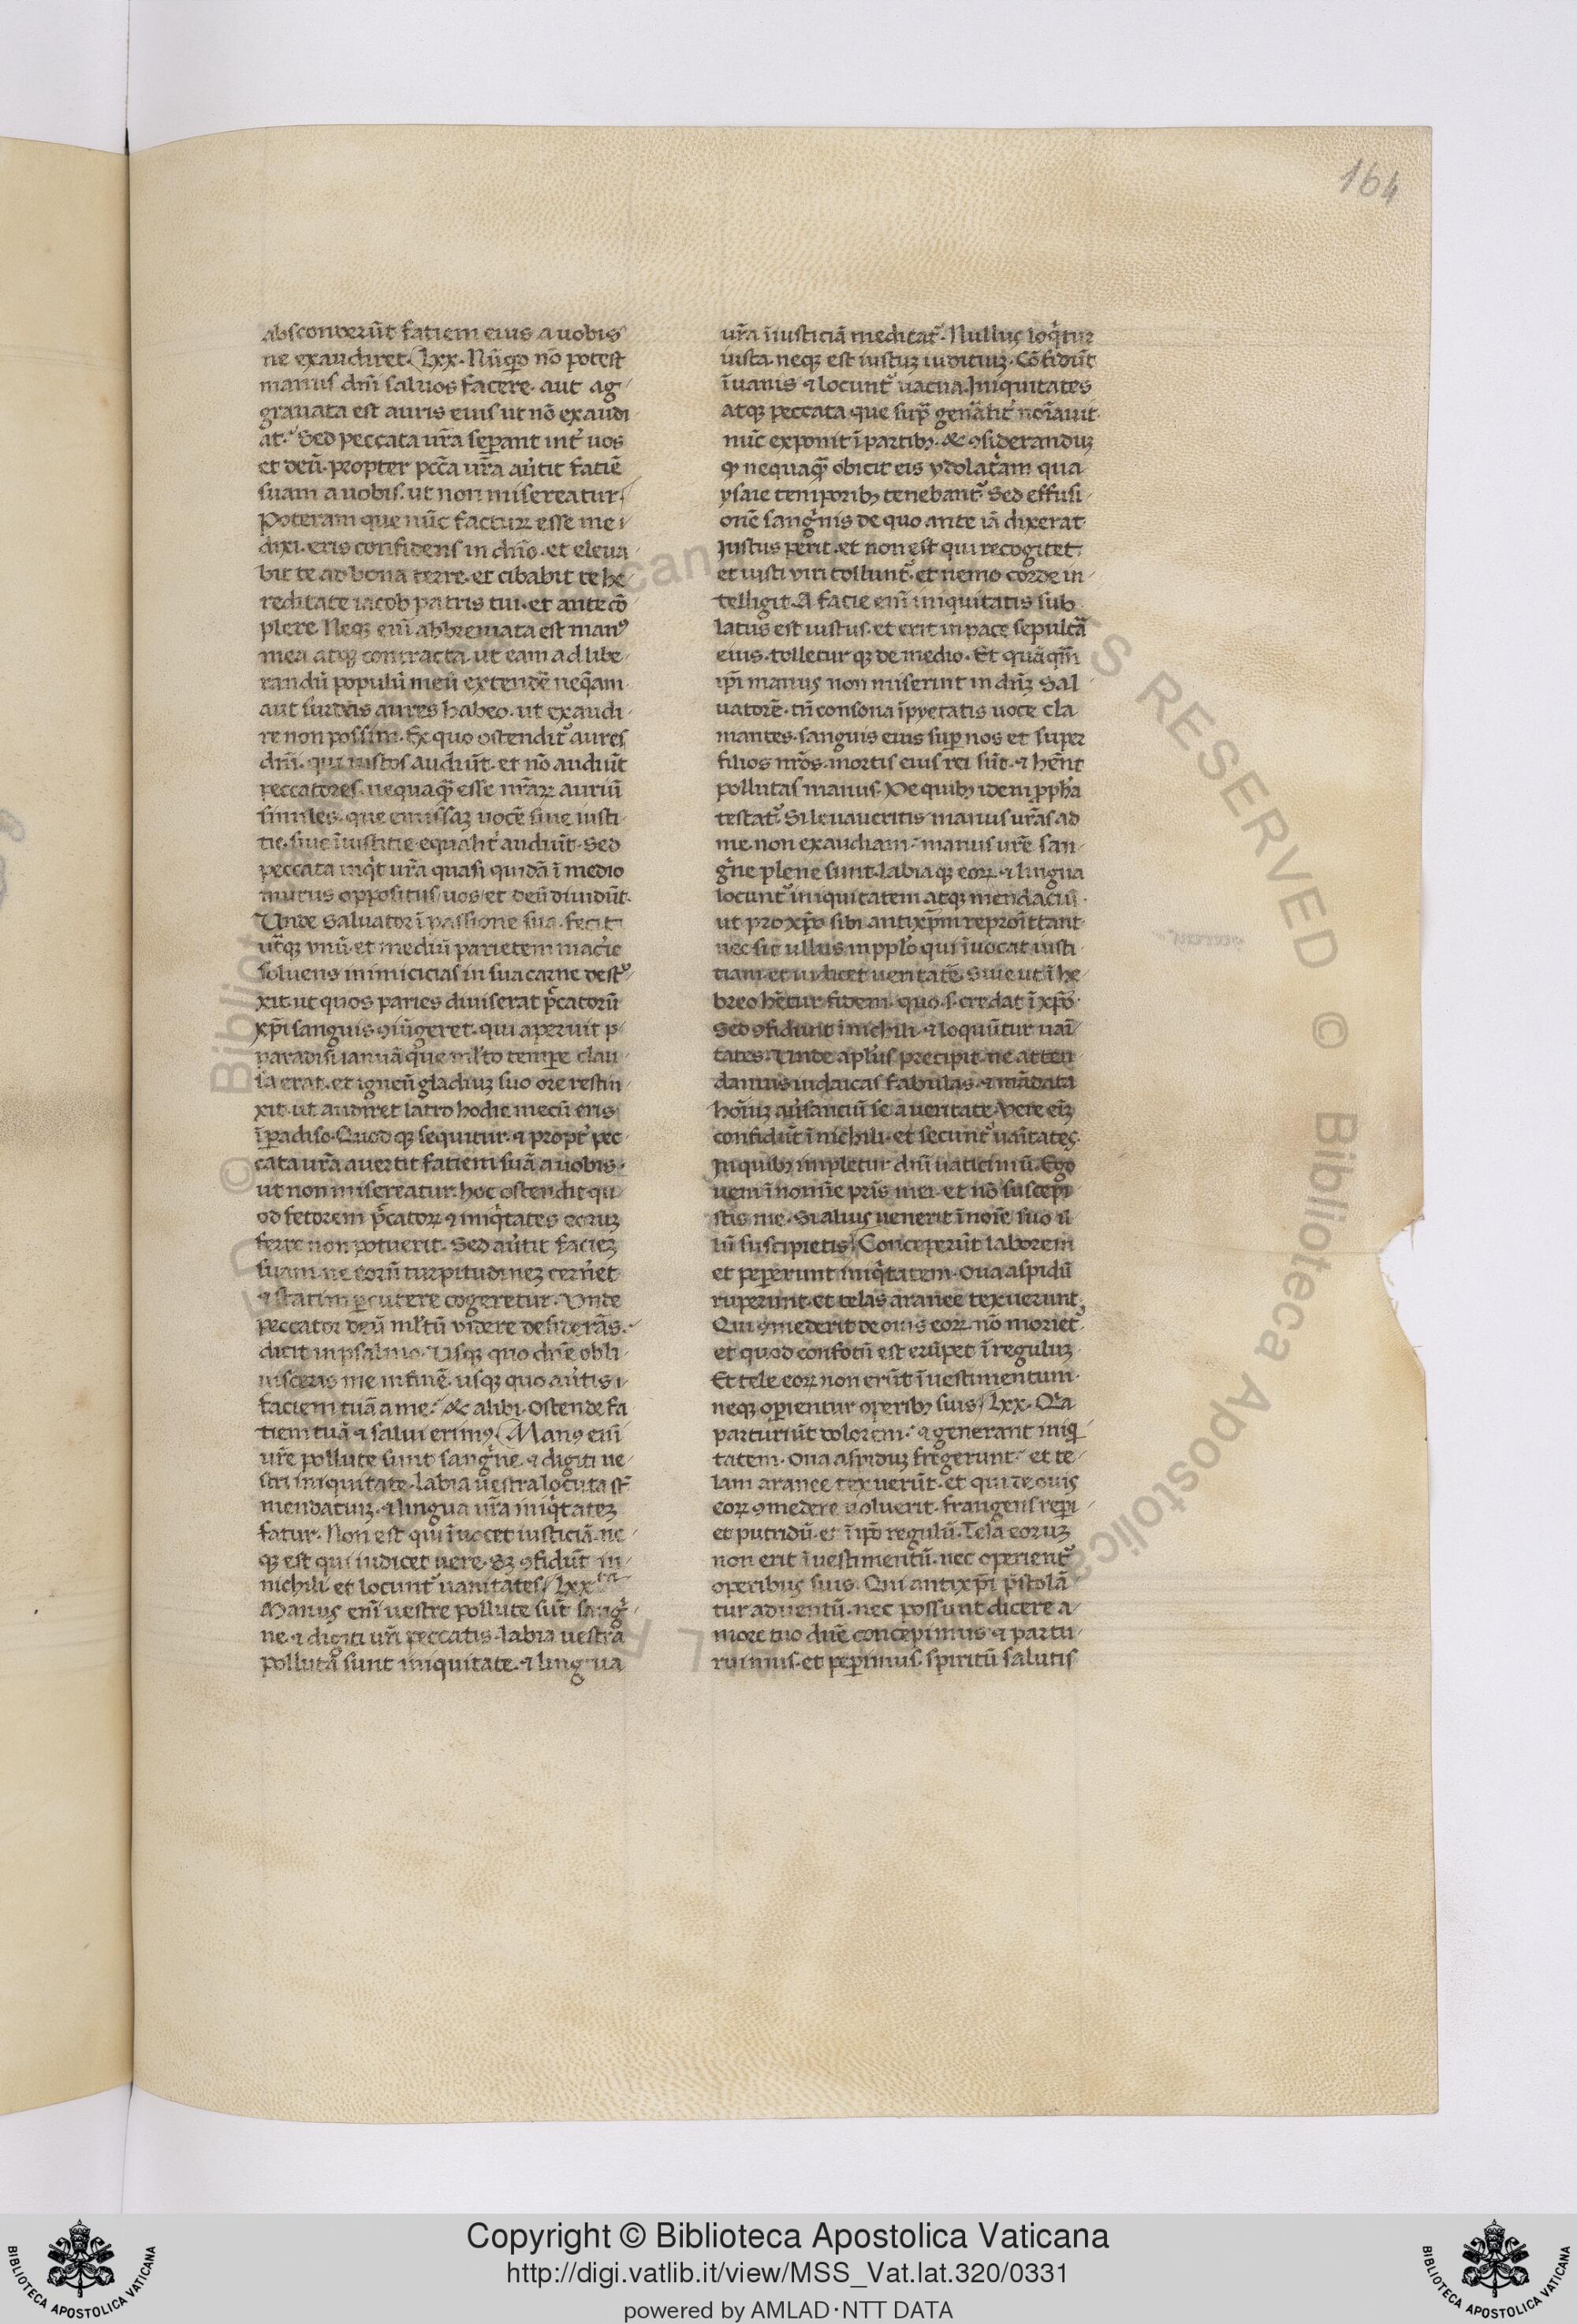 164
absconderūt fatiem eius a uobis
ne exaudiret. Lxx. Nūqͥd nō potest
manus dnī saluos facere. aut ag
grauata est auris eius ut nō exaudi
at. Sed peccata ur̄a sep̄ant int̉ uos
et deū. propter pcc̄a ur̄a aūtit fatiē
suam a uobis. ut non misereatur
Poteram que nūc facturꝝ esse me
dixi. eris confidens in dn̄o. et eleua
bit te ad bona terre. et cibabit te he
reditate iacob patris tui. et ante cō
plere Neqꝫ eni̅ abbreuiata est manꝰ
mea atqꝫ contracta. ut eam ad libe
randū populū meū extendē neq̄am
aut surdas aures habeo. ut exaudi
re non possim. Ex quo ostendit᷑ aures
dnī. qui iustos audiūt. et nō audiūt
peccatores. nequaqꝫ esse nr̄arꝝ auriū
similes. que emissaꝫ uocē siue iusti
tie. siue īiustitie equalit̉ audiūt. Sed
peccata inqͥt ur̄a quasi quidā ī medio
murus oppositus uos et deū diuidūt.
Unde Saluator ī passione sua. fecit
ut̄qꝫ vnū. et mediū parietem mac̉ie
soluens inimicicias in sua carne dest
xit. ut quos paries diuiserat p̄catorū
xp̄i sanguis ꝯiūgeret. qui aperuit p
paradisi ianuā q̄ue ml̄to tempe clau
sa erat. et igneū gladiuꝫ suo ore restin
xit. ut audiret latro hodie mecū eris
ī padiso. Quod qꝫ sequitur. ⁊ propt̉ pec
cata ur̄a auertit fatiem suā a uobis.
ut non misereatur. hoc ostendit qu
od fetorem p̄catorꝝ ⁊ iniqͥtates eoruꝫ
ferre non potuerit. Sed aūtit facieꝫ
suam. ne eorū turpitudineꝫ cern̉et
⁊ statim ꝑcutere cogeretur. Unde
peccator deū ml̄tū videre desiderās.
dicit in psalmo. Usqꝫ quo dn̄e obli
uisceris me in finē. usqꝫ quo aūtis
faciem tuā a me. & alibi. Ostende fa
tiem tuā ⁊ salui erimꝰ Manꝰ eni̅
ur̄e pollute sunt sangͥne. ⁊ digiti ue
stri iniquitate. labia uestra locuta st̄
mendatiuꝫ. ⁊ lingua ur̄a iniqͥtateꝫ
fatur. Non est qui īuocet iusticiā. ne
qꝫ est qui iudicet uere. Sꝫ ꝯfidūt in
nichili et locunt᷑ uanitates Lxx
Manus eni̅ uestre pollute sūt sangͥ
ne. ⁊ digiti ur̄i peccatis. labia uestra
polluta sunt iniquitate. ⁊ lingua
ur̄a īiusticiā meditat᷑. Nullus loqͥtur
iusta. neqꝫ est iustuꝫ iuditiuꝫ. Cōfidūt
ī uanis ⁊ locunt᷑ uacua. Iniquitates
atqꝫ peccata que sup̄ gen̄alit̉ nōiauit
nūc exponit ī partibꝫ. & ꝯsideranduꝫ
ꝙ nequaqꝫ obicit eis ydolat̉iam qua
ysaie temporibꝫ tenebant᷑. Sed effusi
onē sangͥnis de quo ante iā dixerat
Iustus perit. et non est qui recogitet.
et iusti viri tollunt᷑. et nemo corde in
telligit. A facie eni̅ iniquitatis sub
latus est iustus. et erit in pace sepultā
eius. tolletur qꝫ de medio. Et quāqm̄
ip̄i manus non miserint in dn̄ꝫ Sal
uatorē. tn̄ consona īpyetatis uoce cla
mantes. sanguis eius sup nos et super
filios nr̄os. mortis eius rei sūt. ⁊ hēnt
pollutas manus. De quibꝫ idem ꝓph̄a
testat᷑. Si leuaueritis manus ur̄as ad
me. non exaudiam. manus ur̄e san
gͥne plene sunt. labia qꝫ eorꝝ ⁊ lingua
locunt᷑ iniquitatem atqꝫ mendaciū.
ut pro xp̄o sibi antixp̄m repromittant
nec sit ullus in ppl̄o qui īuocat iusti
tiam. et iudicet ueritatē. Siue ut ī he
breo hētur fidem. quo .s. credat ī xp̄o.
Sed ꝯfidunt ī nichili. ⁊ loquūtur uai
tates. Unde apl̄us precipit. ne atten
damus iudaicas fabulas. ⁊ mādata
hoīuꝫ aūsantiū se a ueritate. Vere eīꝫ
confidūt ī nichili. et secunt᷑ uaītates.
In quibꝫ impletur dnī uaticiniū. Ego
ueni ī nomīe pris mei. et nō suscepi
stis me. Si alius uenerit ī noīe suo il
lū suscipietis Conceperūt laborem
et pepererunt iniqͥtatem. Oua aspidū
ruperunt. et telas aranee texuerunt.
Qui ꝯmederit de ouis eorꝝ nō moriet᷑
et quod confotū est erūpet ī reguluꝫ
Et tele eorꝝ non erūt ī uestimentum.
neqꝫ opientur operibꝫ suis Lxx. Qͥa
parturiūt dolorem. ⁊ generant iniq
tatem. Oua aspiduꝫ fregerunt. et te
lam aranee texuerūt. et qui de ouis
eorꝝ ꝯmedere uoluerit. frangens repi
et putridū. et ī ip̄o regulū. Tela eoruꝫ
non erit ī uestimentū. nec operient᷑
operibus suis. Qui antixp̄i p̄stolā
tur aduentū. nec possunt dicere a
more tuo dn̄e concepimus ⁊ partu
riuimus. et peperimus. spiritū salutis
Copyright © Biblioteca Apostolica Vaticana
http://digi.vatlib.it/view/MSS_Vat.lat.320/0331
powered by AMLAD·NTT DATA
BIBLIOTECA APOSTOLICA VATICANA
BIBLIOTECA APOSTOLICA VATICANA